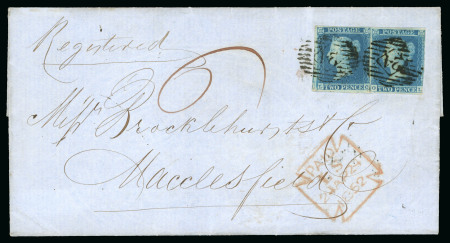 POSTAGE POSTAGE
TWO PENCE TWO PENCE
Registered
6
Messrs Brocklehurst & Co
Macclesfield
PAID
1852